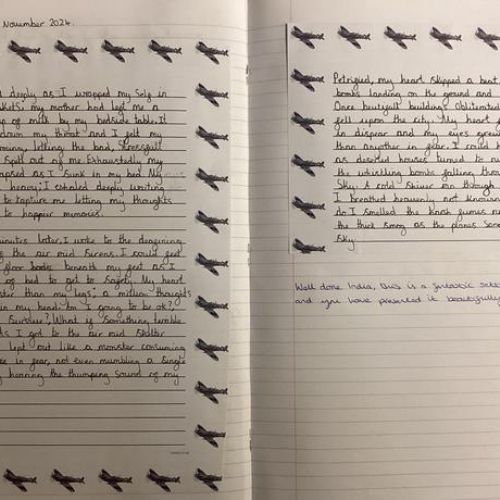 November 2024.
deeply as I wrapped my self in
my mother had left me a
of milk by my bedside table. It
down my throat and I felt my
letting the bad, stressful
spill out of me. Exhaustedly my
as I sunk in my bed. My
heavy; I exhaled deeply waiting
to capture me letting my thoughts
to happier memories.
later, I woke to the deafening
of the air raid sirens. I could feel
floor beneath my feet as I
of bed to get to safety. My heart
than my legs, a million thoughts
in my head: Am I going to be ok?,
survive?, What if something terrible
As I got to the air raid shelter
lept out like a monster consuming
in fear, not even mumbling a single
hearing the thumping sound of my
Petrified, my heart skipped a beat
bombs landing on the ground and
Once beutifull building Obliterated
fell upon the city. My heart
in dispear and my eyes grew
than anyother in fear. I could
as deserted houses turned to
the whistling bombs falling
Sky. A cold shiver ran through
I breathed heavenly not knowing
do I smelled the harsh fumes
the thick smog as the planes
Sky.
Well done India, this is a fantastic
and you have presented it beautifully